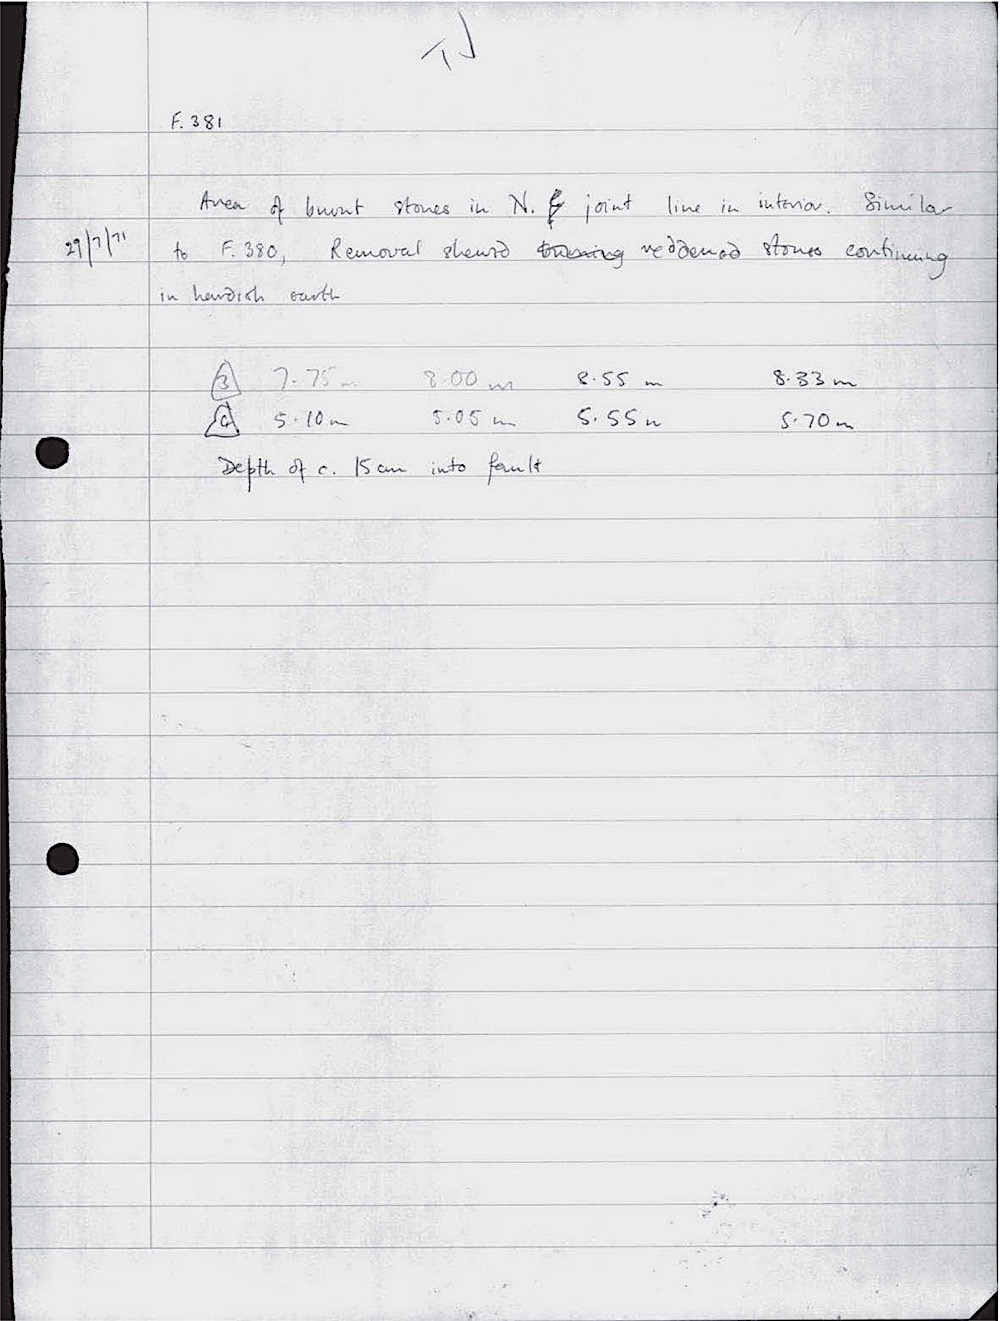 F. 381
Area of burnt stones in N. joint line in interior. Similar
29/7/71 to F. 380, Removal shewed burning reddened stones continuing
in hardish earth
3 7.75 m 8.00 m 8.55 m 8.33 m
4 5.10 m 5.05 m 5.55 m 5.70 m
Depth of c. 15 cm into fault